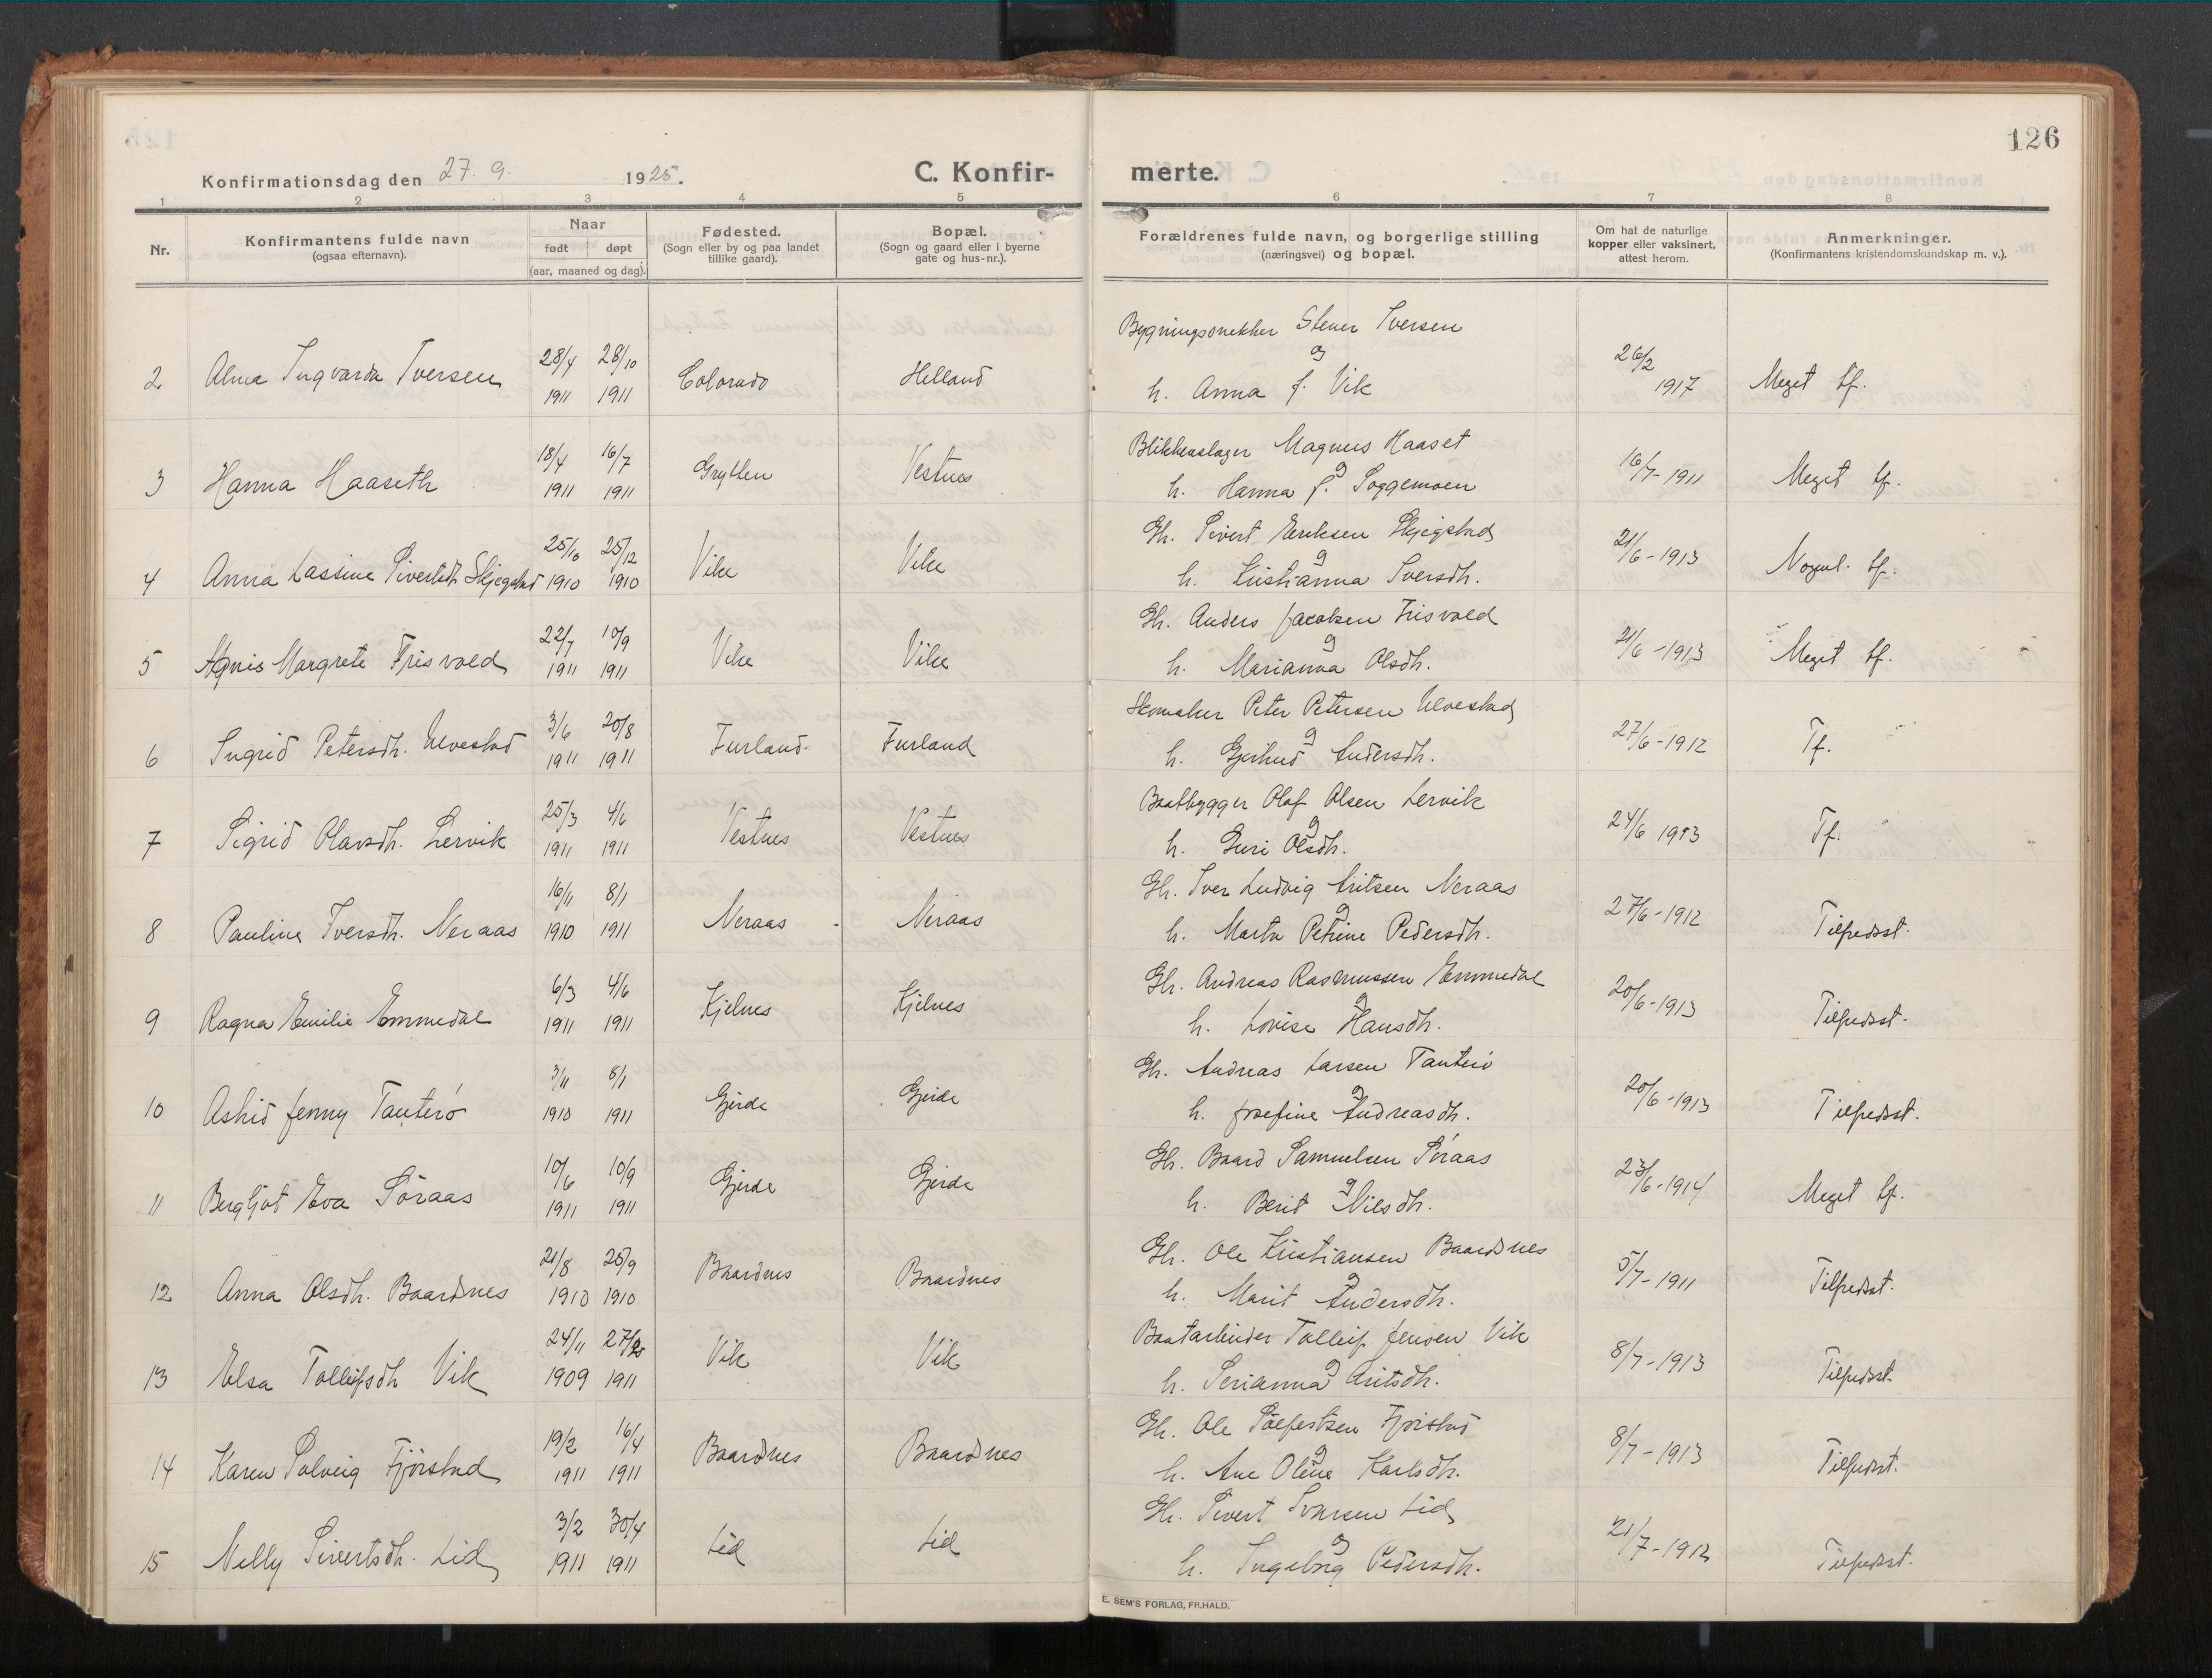 126
Konfirmationsdag den 27. 9. 1925.
C. Konfir- merte.
1 2 3 4 5 6 7 8
Nr.
Konfirmantens fulde navn
(ogsaa efternavn).
Naar
født døpt
(aar, maaned og dag).
Fødested.
(Sogn eller by og paa landet
tillike gaard).
Bopæl.
(Sogn og gaard eller i byerne
gate og hus-nr.).
Forældrenes fulde navn, og borgerlige stilling
(næringsvei) og bopæl.
Om hat de naturlige
kopper eller vaksinert,
attest herom.
Anmerkninger.
(Konfirmantens kristendomskundskap m. v.).
Bygningssnekker Stener Iversen
2 Alma Ingvarda Iversen 28/4 1911 28/10 1911 Colorado Helland og 26/2 1917 Meget tf.
h. Anna f. Vik
Blikkenslager Magnus Haaset
3 Hanna Haaseth 18/4 1911 16/7 1911 Grytten Vestnes og 16/7-1911 Meget tf.
h. Hanna f. Soggemoen
Gbr. Sivert Eriksen Skjegstad
4 Anna Lassine Sivertsdh Skjegstad 25/10 1910 25/12 1910 Vike Vike og 21/6-1913 Nogenl. tf.
h. Kristianna Iversdh.
Gbr. Anders Jacobsen Frisvold
5 Agnes Margrete Frisvold 22/7 1911 10/9 1911 Vike Vike og 21/6-1913 Meget tf.
h. Marianna Olsdh.
Skomaker Peter Petersen Ulvestad
6 Ingrid Petersdh. Ulvestad 3/6 1911 20/8 1911 Furland Furland og 27/6-1912 Tf.
h. Gjertrud Andersdh.
Baatbygger Olaf Olsen Lervik
7 Sigrid Olavsdh. Lervik 25/3 1911 4/6 1911 Vestnes Vestnes og 24/6 1913 Tf.
h. Guri Olsdh.
Gbr. Iver Ludvig Aritsen Neraas
8 Pauline Iversdh. Neraas 16/11 1910 8/1 1911 Neraas Neraas og 27/6-1912 Tilfredsst.
h. Marta Petrine Pedersdh.
Gbr. Andreas Rasmussen Emmedal
9 Ragna Emilie Emmedal 6/3 1911 4/6 1911 Kjelnes Kjelnes og 20/6-1913 Tilfredsst.
h. Lovise Hansdh.
Gbr. Andreas Larsen Tauterø
10 Astrid Jenny Tauterø 3/11 1910 8/1 1911 Gjerde Gjerde og 20/6-1913 Tilfredsst.
h. Josefine Andreasdh.
Gbr. Baard Samuelsen Söraas
11 Bergljot Eva Söraas 10/6 1911 10/9 1911 Gjerde Gjerde og 23/6-1914 Meget tf.
h. Berit Nilsdh.
Gbr. Ole Kristiansen Baardsnes
12 Anna Olsdh. Baardsnes 21/8 1910 25/9 1910 Baardsnes Baardsnes og 5/7-1911 Tilfredsst.
h. Marit Andersdh.
Baatarbeider Tolleif Jensen Vik
13 Elsa Tolleifsdh Vik 24/11 1909 1911 Vik Vik og 8/7-1913 Tilfredsst.
h. Serianna Aritsdh.
Gbr. Ole Sölfestsen Fjörstad
14 Karen Solveig Fjörstad 19/2 1911 16/4 1911 Baardsnes Baardsnes og 8/7-1913 Tilfredsst.
h. Ane Oline Karlsdh.
Gbr. Sivert Ivarsen Lid
15 Nelly Sivertsdh. Lid 3/2 1911 30/4 1911 Lid Lid og 21/7-1912 Tilfredsst.
h. Ingeborg Pedersdh.
E. SEM'S FORLAG, FR.HALD.